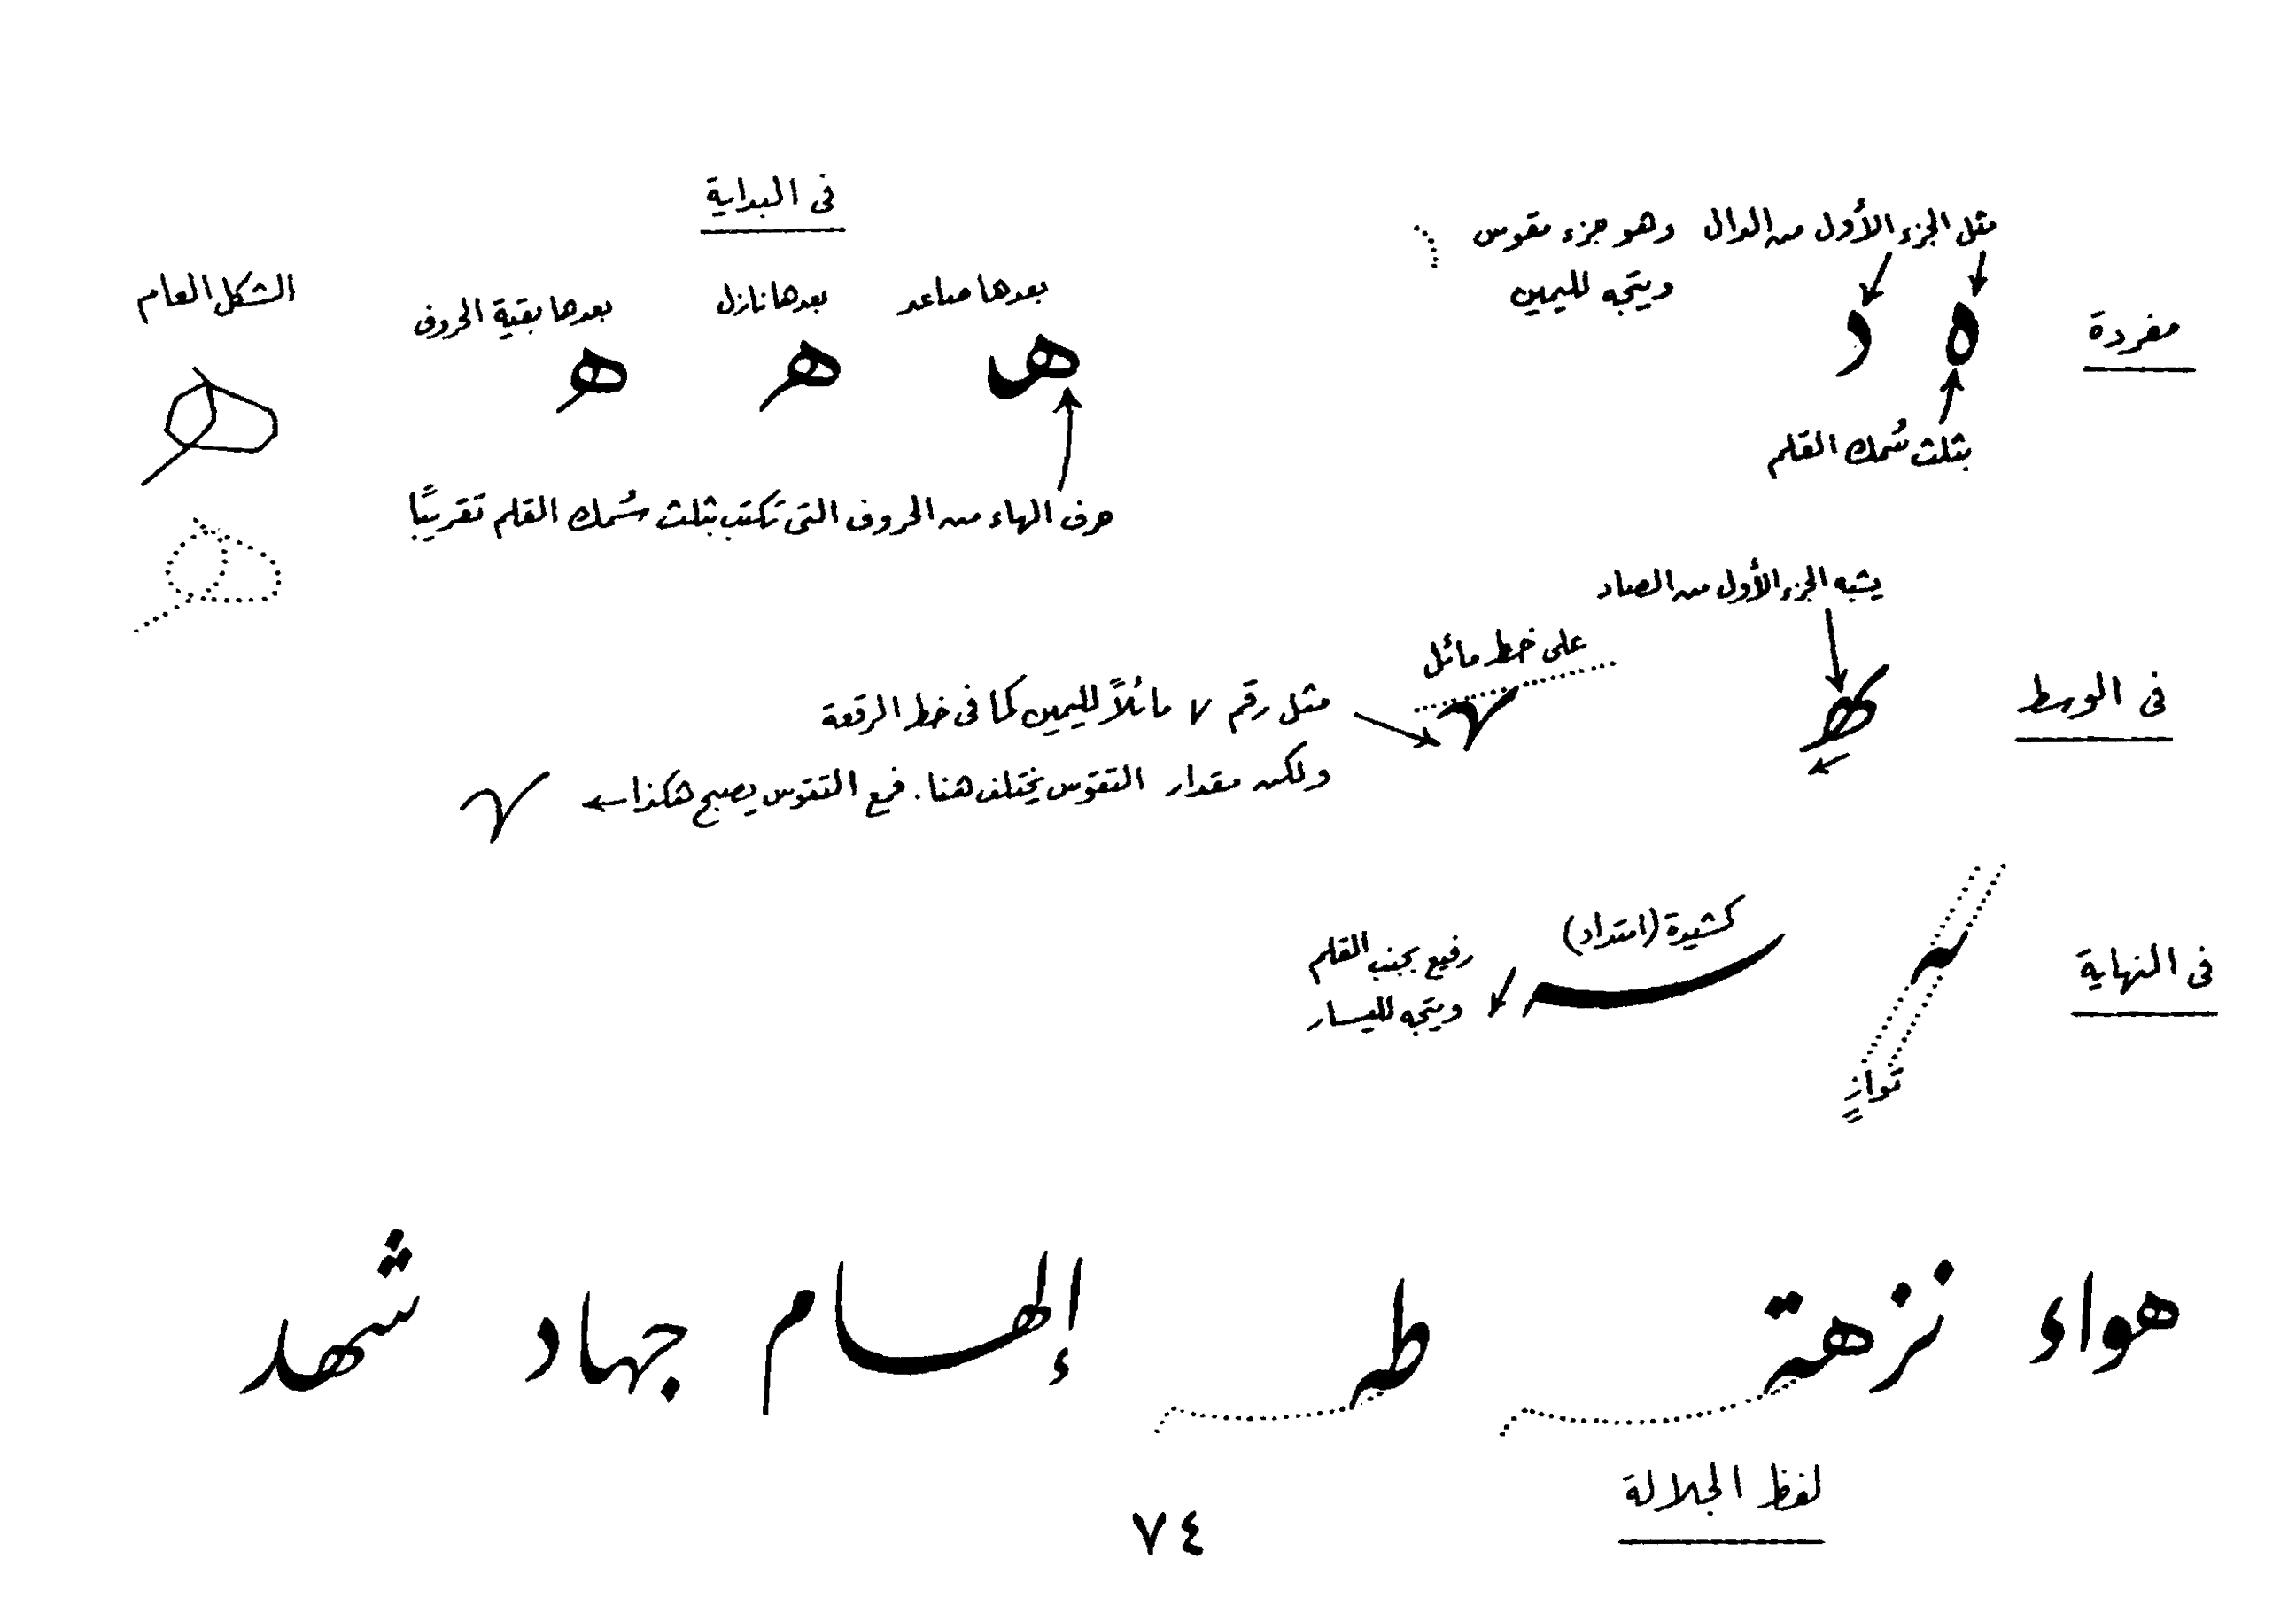 مثل الجزء الأول من الدال وهو جزء مقوس
ويتجه لليمين
مفردة
ه د
بثلث سُمك القلم
فى البداية
بعدها صاعد
بعدها نازل
بعدها بقية الحروف
الشكل العام
هـ هـ هـ
حرف الهاء من الحروف التى تكتب بثلث سُمك القلم تقريبًا
يشبه الجزء الأول من الصاد
فى الوسط
ـهـ
على خط مائل
مثل رقم ٧ مائلاً لليمين كما فى خط الرقعة
ولكن مقدار التقوّس يختلف هنا. فمع التقوّس يصبح هكذا
فى النهاية
كشيدة (امتداد)
رفيع بجنب القلم
ويتجه لليسار
توازٍ
هواء نزهة طه إلهام جهاد شهد
لفظ الجلالة
٧٤